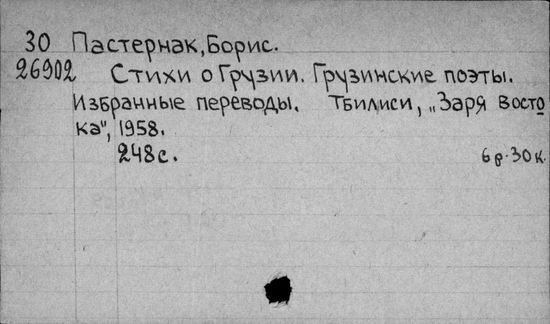 30 Пастернак, Борис.
26902 Стихи о Грузии. Грузинские поэты.
Избранные переводы. Тбилиси, „Заря Восто
ка", 1958.
248 с. 6 р. 30 к.